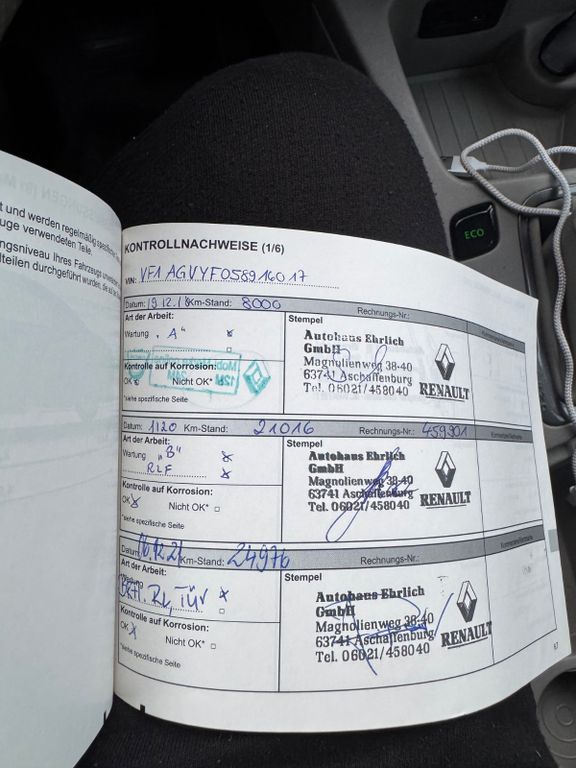 t und werden regelmäßig
uge verwendeten Teile.
ngsniveau Ihres Fahrzeugs
lteilen durchgeführt wurden, die
ECO
KONTROLLNACHWEISE (1/6)
VIN: VF1AGVYF058914017
Datum: 19.12.18 Km-Stand: 8000 Rechnungs-Nr.:
Art der Arbeit:
Wartung "A"
Kontrolle auf Korrosion:
OK Nicht OK*
*siehe spezifische Seite
Stempel
Autohaus Ehrlich
GmbH
Magnolienweg 38-40
63741 Aschaffenburg
Tel. 06021/458040
RENAULT
Datum: 1120 Km-Stand: 21016 Rechnungs-Nr.: 459901
Art der Arbeit:
Wartung "B"
RLF
Kontrolle auf Korrosion:
OK Nicht OK*
*siehe spezifische Seite
Stempel
Autohaus Ehrlich
GmbH
Magnolienweg 38-40
63741 Aschaffenburg
Tel. 06021/458040
RENAULT
Datum: 16.12.21 Km-Stand: 24976 Rechnungs-Nr.:
Art der Arbeit:
Wartung
TÜV
Kontrolle auf Korrosion:
OK Nicht OK*
*siehe spezifische Seite
Stempel
Autohaus Ehrlich
GmbH
Magnolienweg 38-40
63741 Aschaffenburg
Tel. 06021/458040
RENAULT